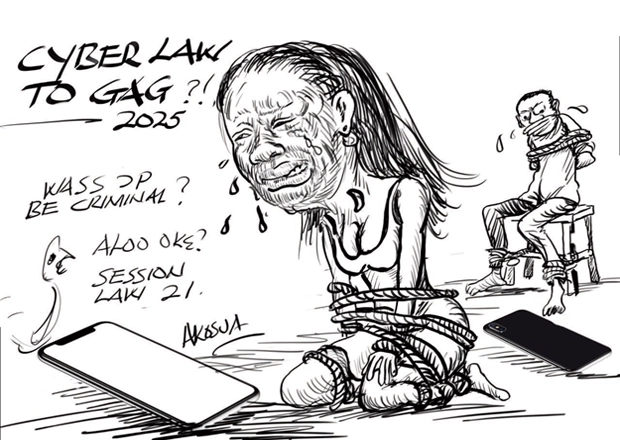 CYBER LAW
TO GAG ?!
2025
WASS UP
BE CRIMINAL?
ALOO OKƐ?
SESSION
LAW 21.
AKOSUA